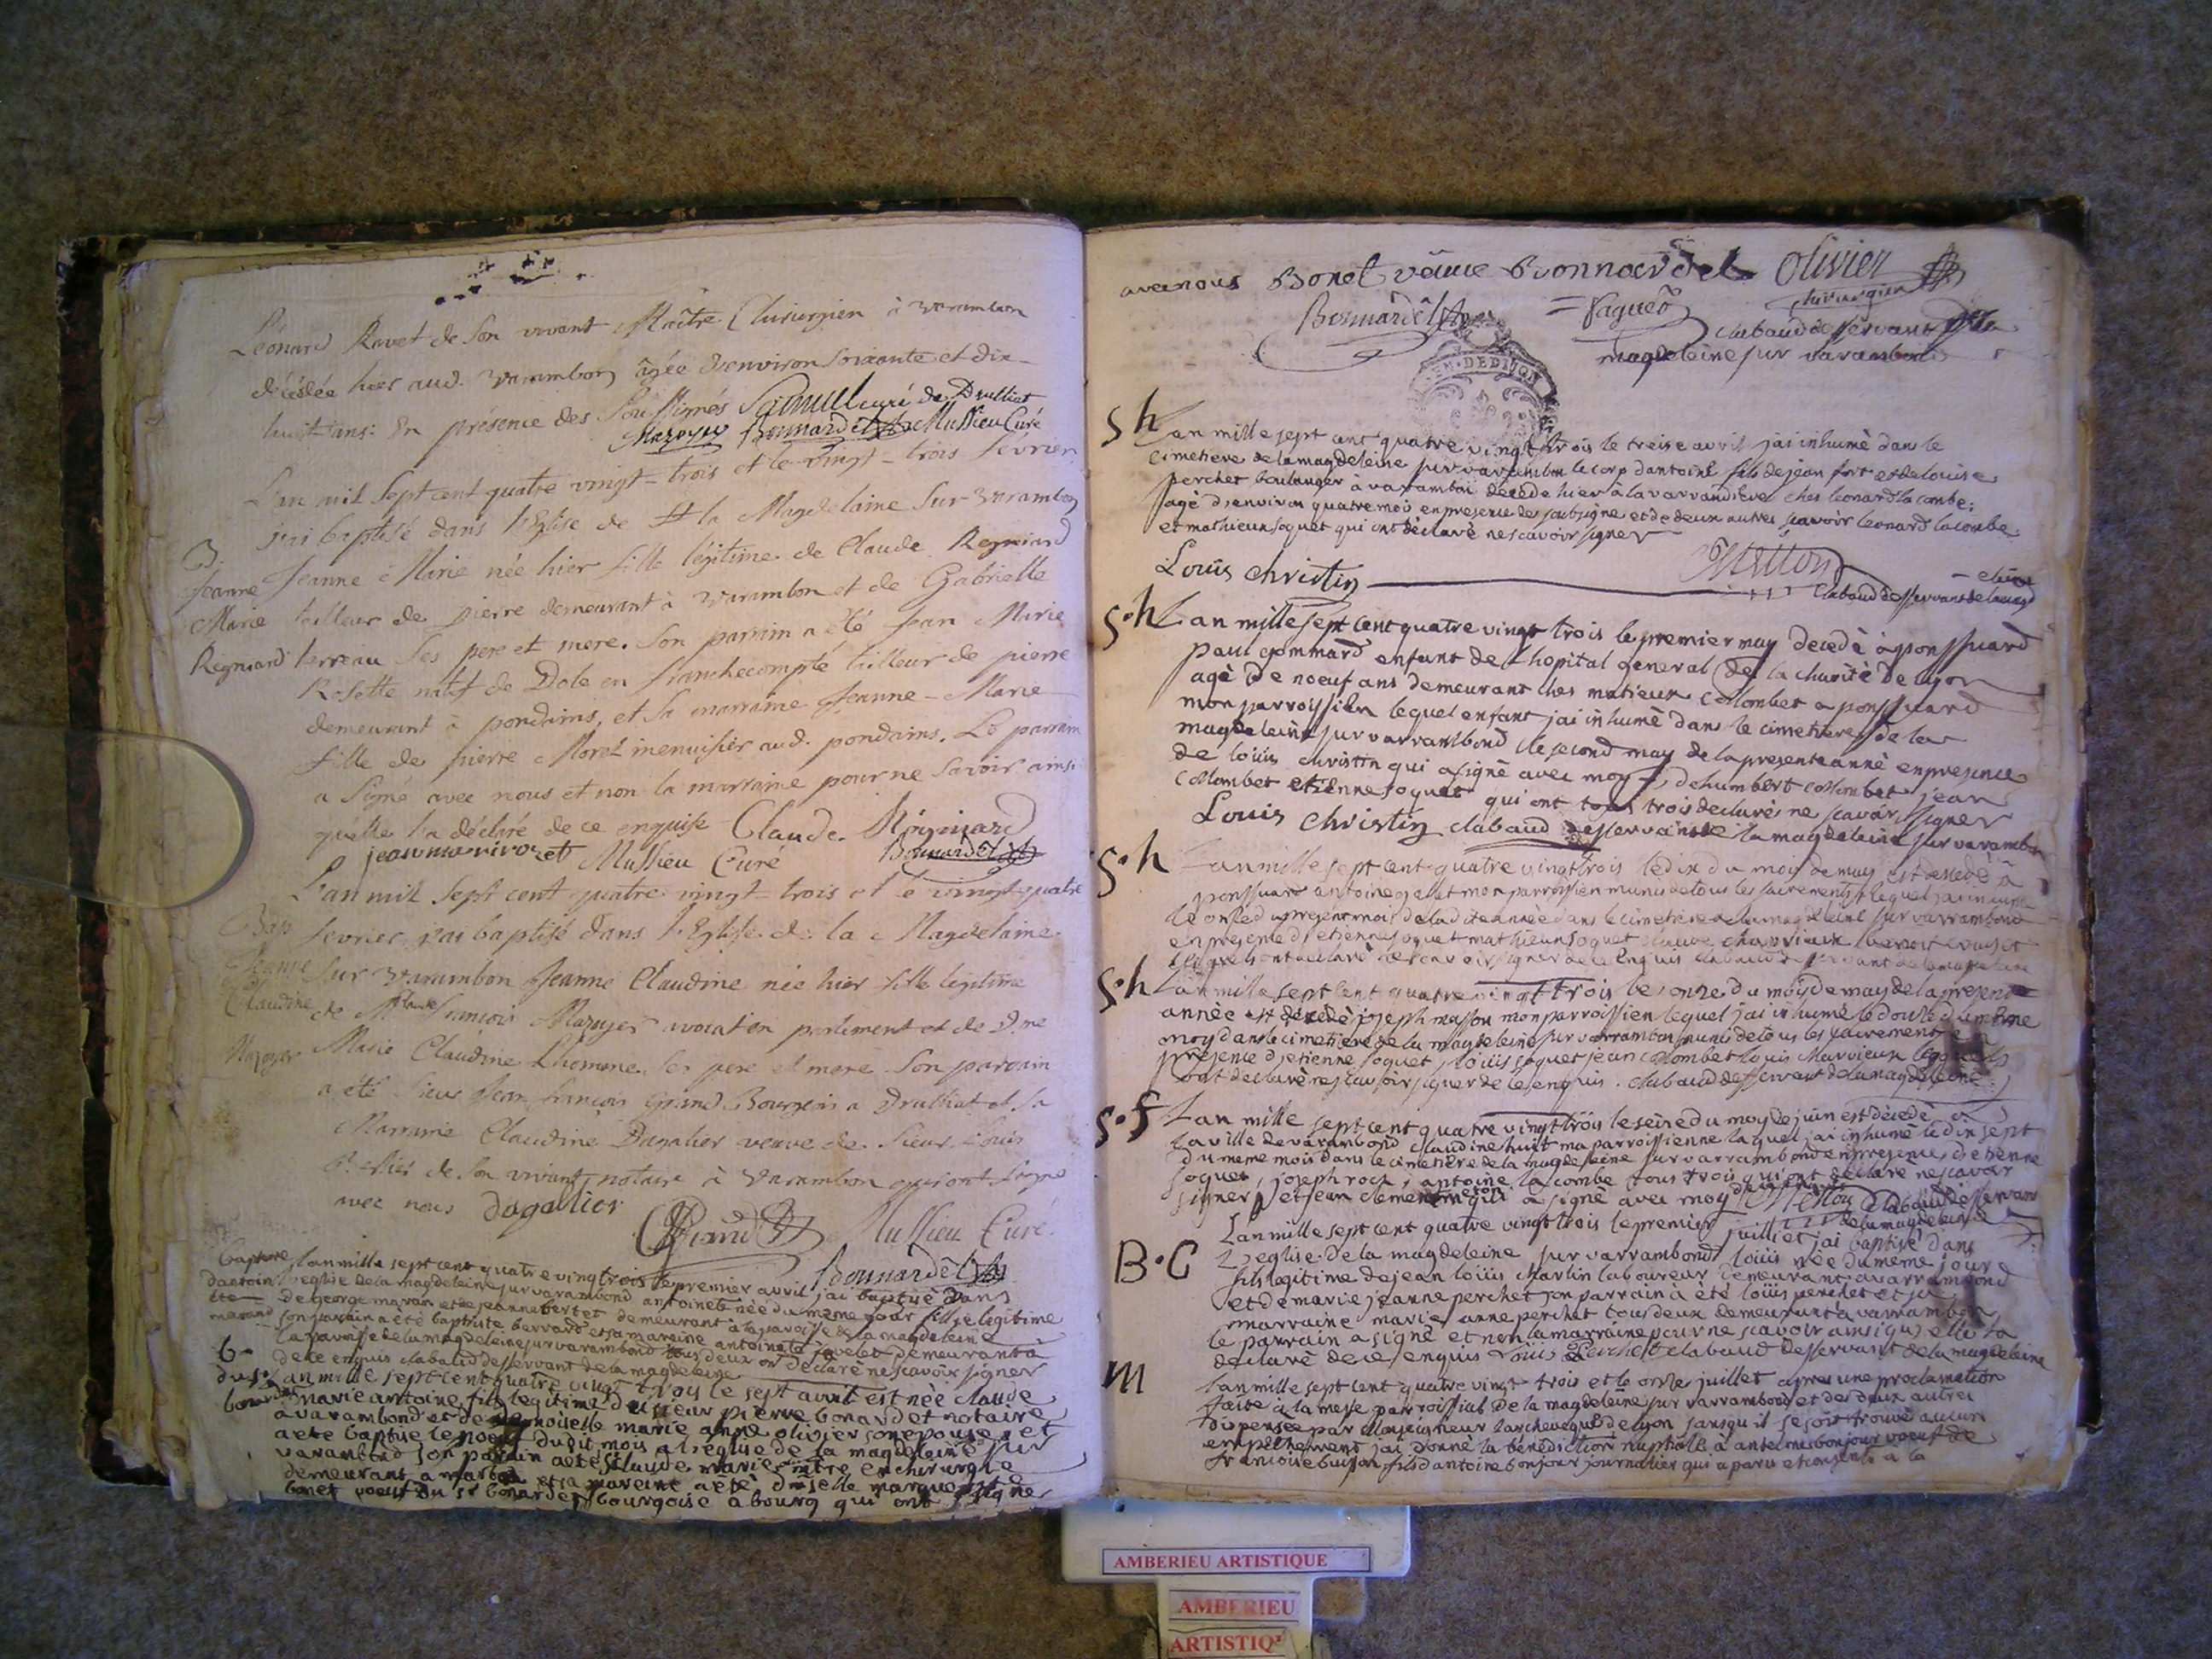 Léonard Ravet de Son vivant Maître Chirurgien à Varambon
décédée hier aud. Varambon âgée d'environ soixante et dix-
huit ans: En présence des Soussignés curé de Druilliat
Mazoyer Bonnardel Mussieu Curé
L'an mil Sept cent quatre vingt-trois et le vingt-trois février
j'ai baptisé dans l'Eglise de la Magdelaine Sur Varambon
B.
Jeanne Marie née hier fille légitime de Claude Regniard
Jeanne
Marie
Regniard
tailleur de pierre demeurant à Varambon et de Gabrielle
terreau Ses pere et mere. Son parrain a été Jean Marie
Rosette natif de Dole en franchecompté tailleur de pierre
demeurant à pondains, et Sa marraine Jeanne-Marie
fille de pierre Morel menuisier aud. pondains. Le parrain
a Signé avec nous et non la marraine pour ne Savoir ainsi
qu'elle l'a déclaré de ce enquise Claude Régniard
Mussieu Curé Bonnardel
L'an mil Sept cent quatre vingt-trois et le vingt-quatre
Bap
Jeanne
Claudine
Mazoyer
fevrier j'ai baptisé dans l'Eglise de la Magdelaine
Sur Varambon Jeanne Claudine née hier fille legitime
de Mr Claude francois Mazoyer avocat en parlement et de Dme
Marie Claudine Lhomme les pere et mere Son parrain
a été Sieur Jean francois Grand Bourgeois a Druilliat et Sa
Marraine Claudine Dagallier veuve de Sieur Louis
de Son vivant notaire à Varambon qui ont Signé
avec nous dagallier
Grand Mussieu Curé.
Bonnardel
bapteme
dantoin
ete
marand
lan mille sept cent quatre vingt trois le premier avril jai baptisé dans
leglise de la magdeleine sur varambond antoinete née du meme jour fille legitime
de george maran et de jeanne bertet demeurant à la paroisse de la magdeleine
son parrain a été baptiste berrard et sa maraine antoinete javelet demeurant à
la paroisse de la magdeleine sur varambond tous deux on declaré ne scavoir signer
de ce enquis clabaud desservant de la magdeleine
b.
du sr
lan mille sept cent quatre vingt trois le sept avril est née claude
marie antoine fils legitime du sieur pierre bonardet notaire
a varambond et de demoiselle marie anne olivier son epouse, et
a été baptisé le noeuf dudit mois a l'eglise de la magdeleine sur
varambond son parrain a été sr claude marie maitre en chirurgie
demeurant a et sa mareine a été dmselle marguerite
bonet voeuve du sr bonardet bourgoise a bourg qui ont signé
avec nous Bonet vëuve Bonnardel Olivier
chirurgien
Bonnardel fagueö
clabaud desservant de la
magdeleine sur varambond
GEN. DE DIJON
S h Lan mille sept cent quatre vingt trois le treise avril jai inhumé dans le
cimetiere de la magdeleine sur varambon le corp dantoine fils de jean fort et de louise
perchet boulanger à varambon décédé hier à la varvandiere ches leonard lacombe;
agé d'environ quatre mois en presence des soubsigne et de deux autres scavoir leonard lacombe
et mathieu soquet qui ont déclaré ne scavoir signer
Louis christin Mellon
clabaud desservant de la magd
S.h Lan mille sept cent quatre vingt trois le premier may decedé à ponssuard
paul gommard enfant de l'hopital general de la charité de lyon
agé de noeuf ans demeurant ches matieux Collombet a ponssuard
mon parroissien lequel enfant jai inhumé dans le cimetiere de la
magdeleine sur varrambond le second may de la presente anné en presence
de loüis christin qui a signé avec moy, d'humbert collombet jean
Collombet etienne soquet qui ont tous trois declarés ne scavoir signer
Louis christin clabaud desservant de la magdeleine sur varambon
S.h Lan mille sept cent quatre vingt trois le dix du mois de may est decedé à
ponssuard antoine mon parroissien munis de tous les sacrements lequel jai inhumé
le onse du present mois de la dite année dans le cimetiere de la magdeleine sur varrambond
en presence d'etienne soquet mathieu soquet claude benoit
lesquels ont declaré ne scavoir signer de ce enquis clabaud desservant de la magdeleine
S.h Lan mille sept cent quatre vingt trois le onze du mois de may de la presente
année est decedé joseph masson mon parroissien lequel jai inhumé le douse du meme
moy dans le cimetiere de la magdeleine sur varrambon munis de tous les sacrements en
presence d'etienne soquet, loüis soquet jean collombet louis lesquels
ont declaré ne scavoir signer de ce enquis. clabaud desservant de la magdeleine
S.f Lan mille sept cent quatre vingt trois le seise du moy de juin est decedé à
la ville de varambond claudine huit ma parroissienne laquel jai inhumé le dix sept
du meme mois dans le cimetiere de la magdeleine sur varrambond en presence d'etienne
soquet, joseph roch, antoine lacombe tous trois qui ont declaré ne scavoir
signer, et jean clement meton qui a signé avec moy Metton clabaud desservant
de la magdeleine
Lan mille sept cent quatre vingt trois le premier juilliet jai baptisé dans
B.C L'eglise de la magdeleine sur varrambond loüis née du meme jour
fils legitime de jean loüis charlin laboureur demeurant a varrambond
et de marie jeanne perchet son parrain à été loüis perchet et sa
marraine marie anne perchet tous deux demeurant à varrambon
le parrain a signé et non la marraine pour ne scavoir ainsi qu'elle la
declaré de ce enquis Loüis Perchet clabaud desservant de la magdeleine
M Lan mille sept cent quatre vingt trois et le onse juillet apres une proclamation
faite à la messe parroissial de la magdeleine sur varrambond et des deux autres
dispensée par Monseigneur larcheveque de lyon sans qu'il se soit trouvé aucun
empechement jai donné la bénédiction nuptiale à antelme bonjour voeuf de
francoise buisson fils d'antoine bonjour journalier qui a paru et consenti a la
AMBERIEU ARTISTIQUE
AMBERIEU
ARTISTIQ